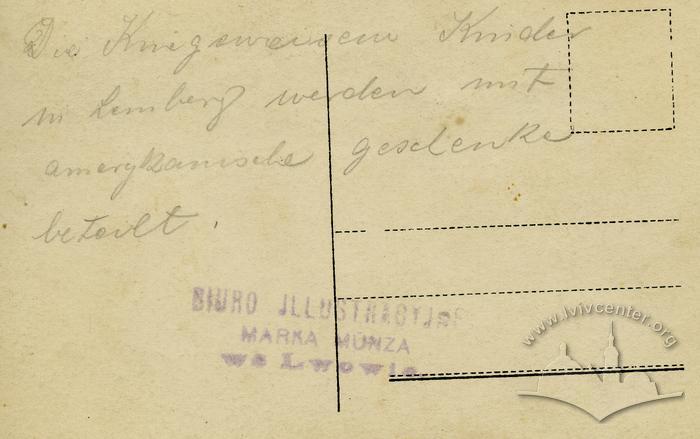 Die Kriegswaisen Kinder
in Lemberg werden mit
amerykanische geschenke
beteilt.
BIURO JLLUSTRACYJNE
MARKA MÜNZA
we Lwowie.
www.lvivcenter.org